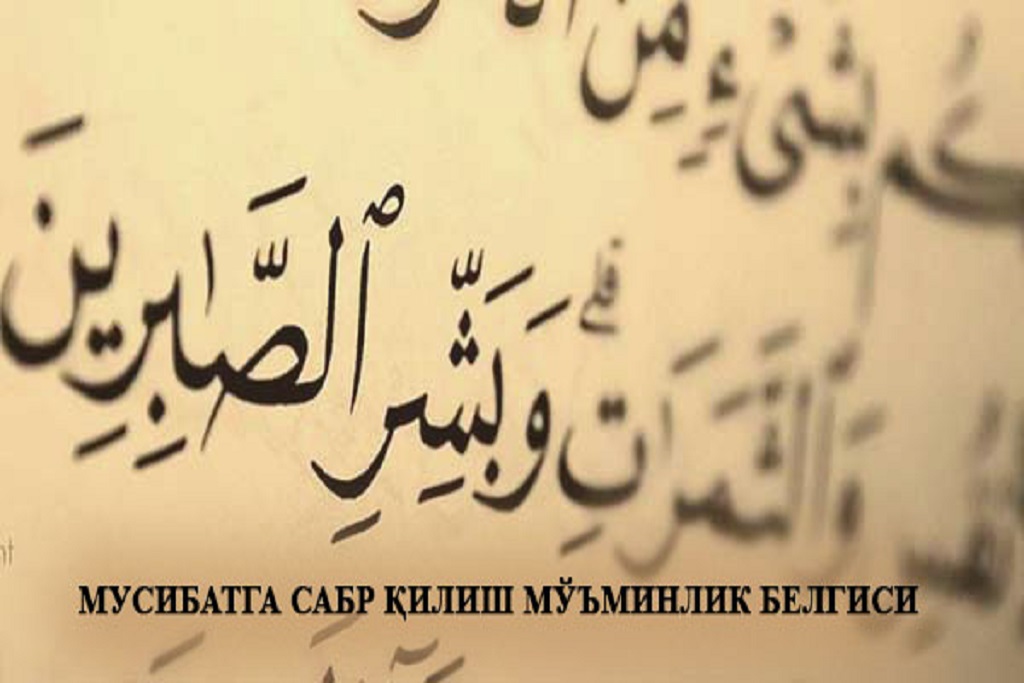 بِشَىْءٍ مِّنَ
وَٱلثَّمَرَٰتِ ۗ وَبَشِّرِ ٱلصَّـٰبِرِينَ
МУСИБАТГА САБР ҚИЛИШ МЎЪМИНЛИК БЕЛГИСИ